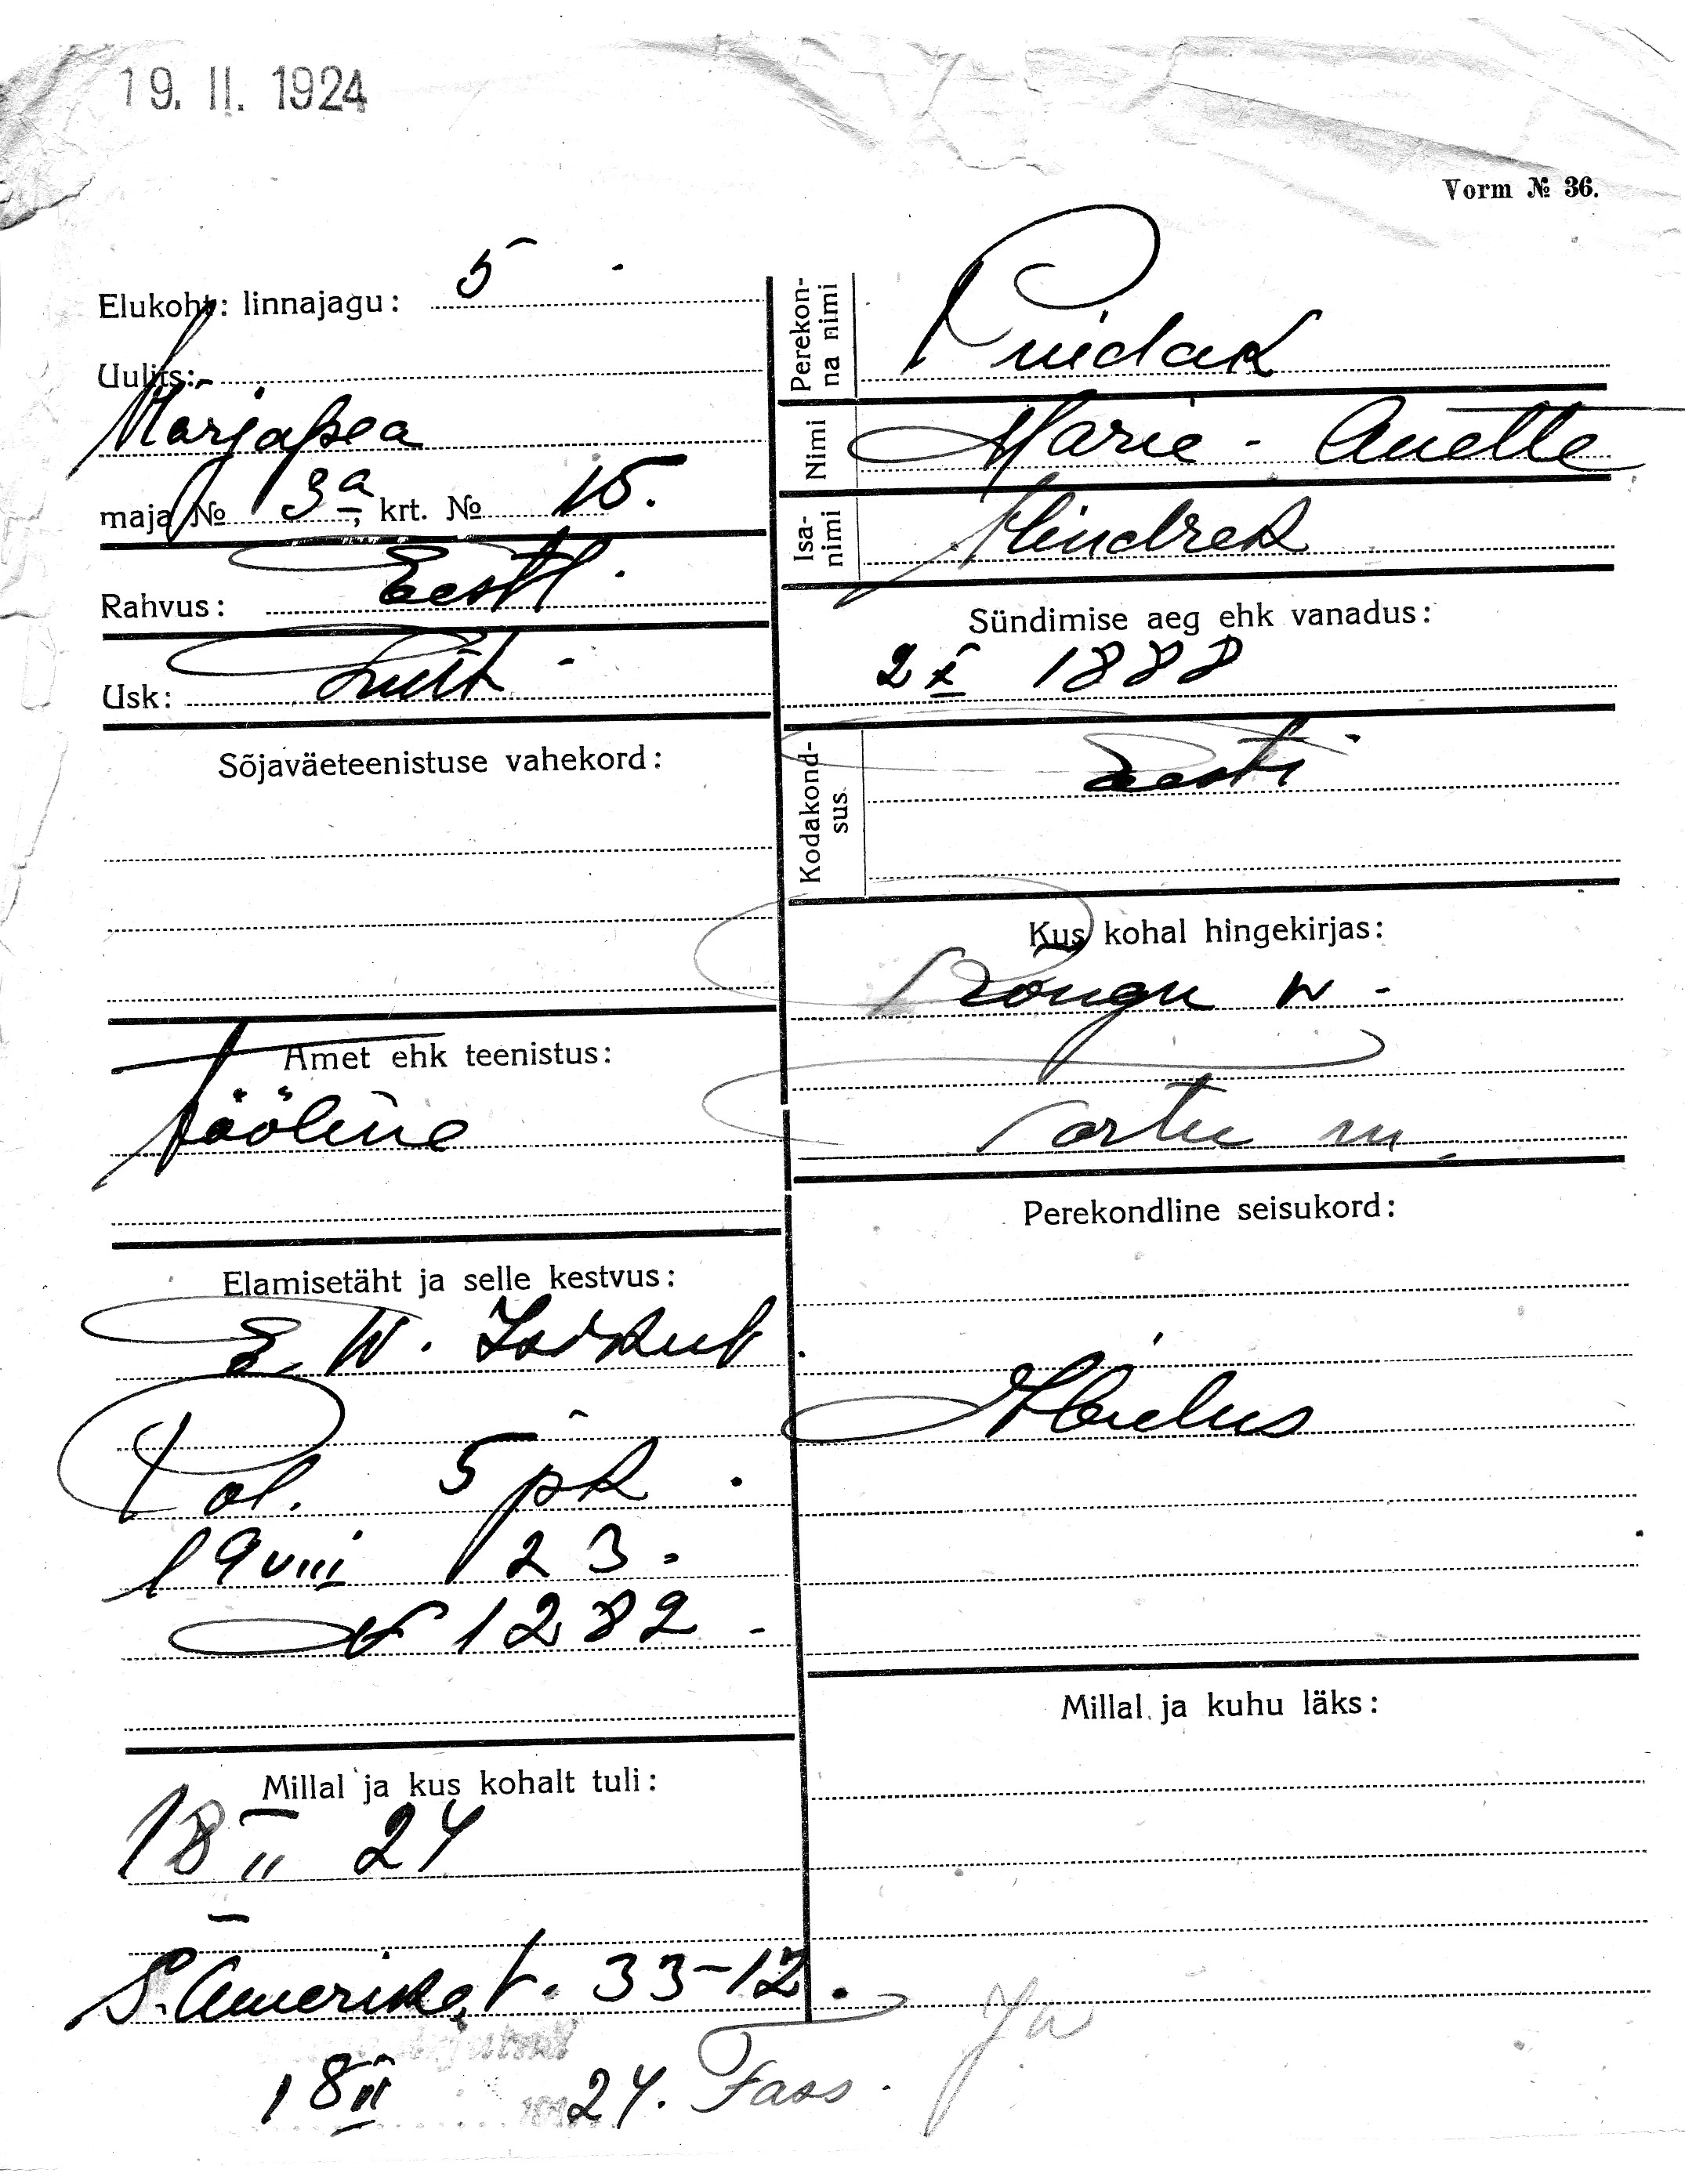 19. II. 1924
Vorm № 36.
Elukoht: linnajagu: 5
Uulits:
Marjapea
maja № 3a, krt. № 15.
Rahvus: Eesti
Usk: Luth
Sõjaväeteenistuse vahekord:
Amet ehk teenistus:
tööline
Elamisetäht ja selle kestvus:
E. W. Isikut
Pol. 5 pk.
19 VIII 23.
№ 1282
Millal ja kus kohalt tuli:
18 II 24
S. Amerika t. 33-12.
18 II 24.
Perekonna nimi
Puidak
Nimi
Marie - Anette
Isanimi
Hindrek
Sündimise aeg ehk vanadus:
2 X 1888
Kodakondsus
Eesti
Kus kohal hingekirjas:
Rõngu w
Tartu m
Perekondline seisukord:
Millal ja kuhu läks: